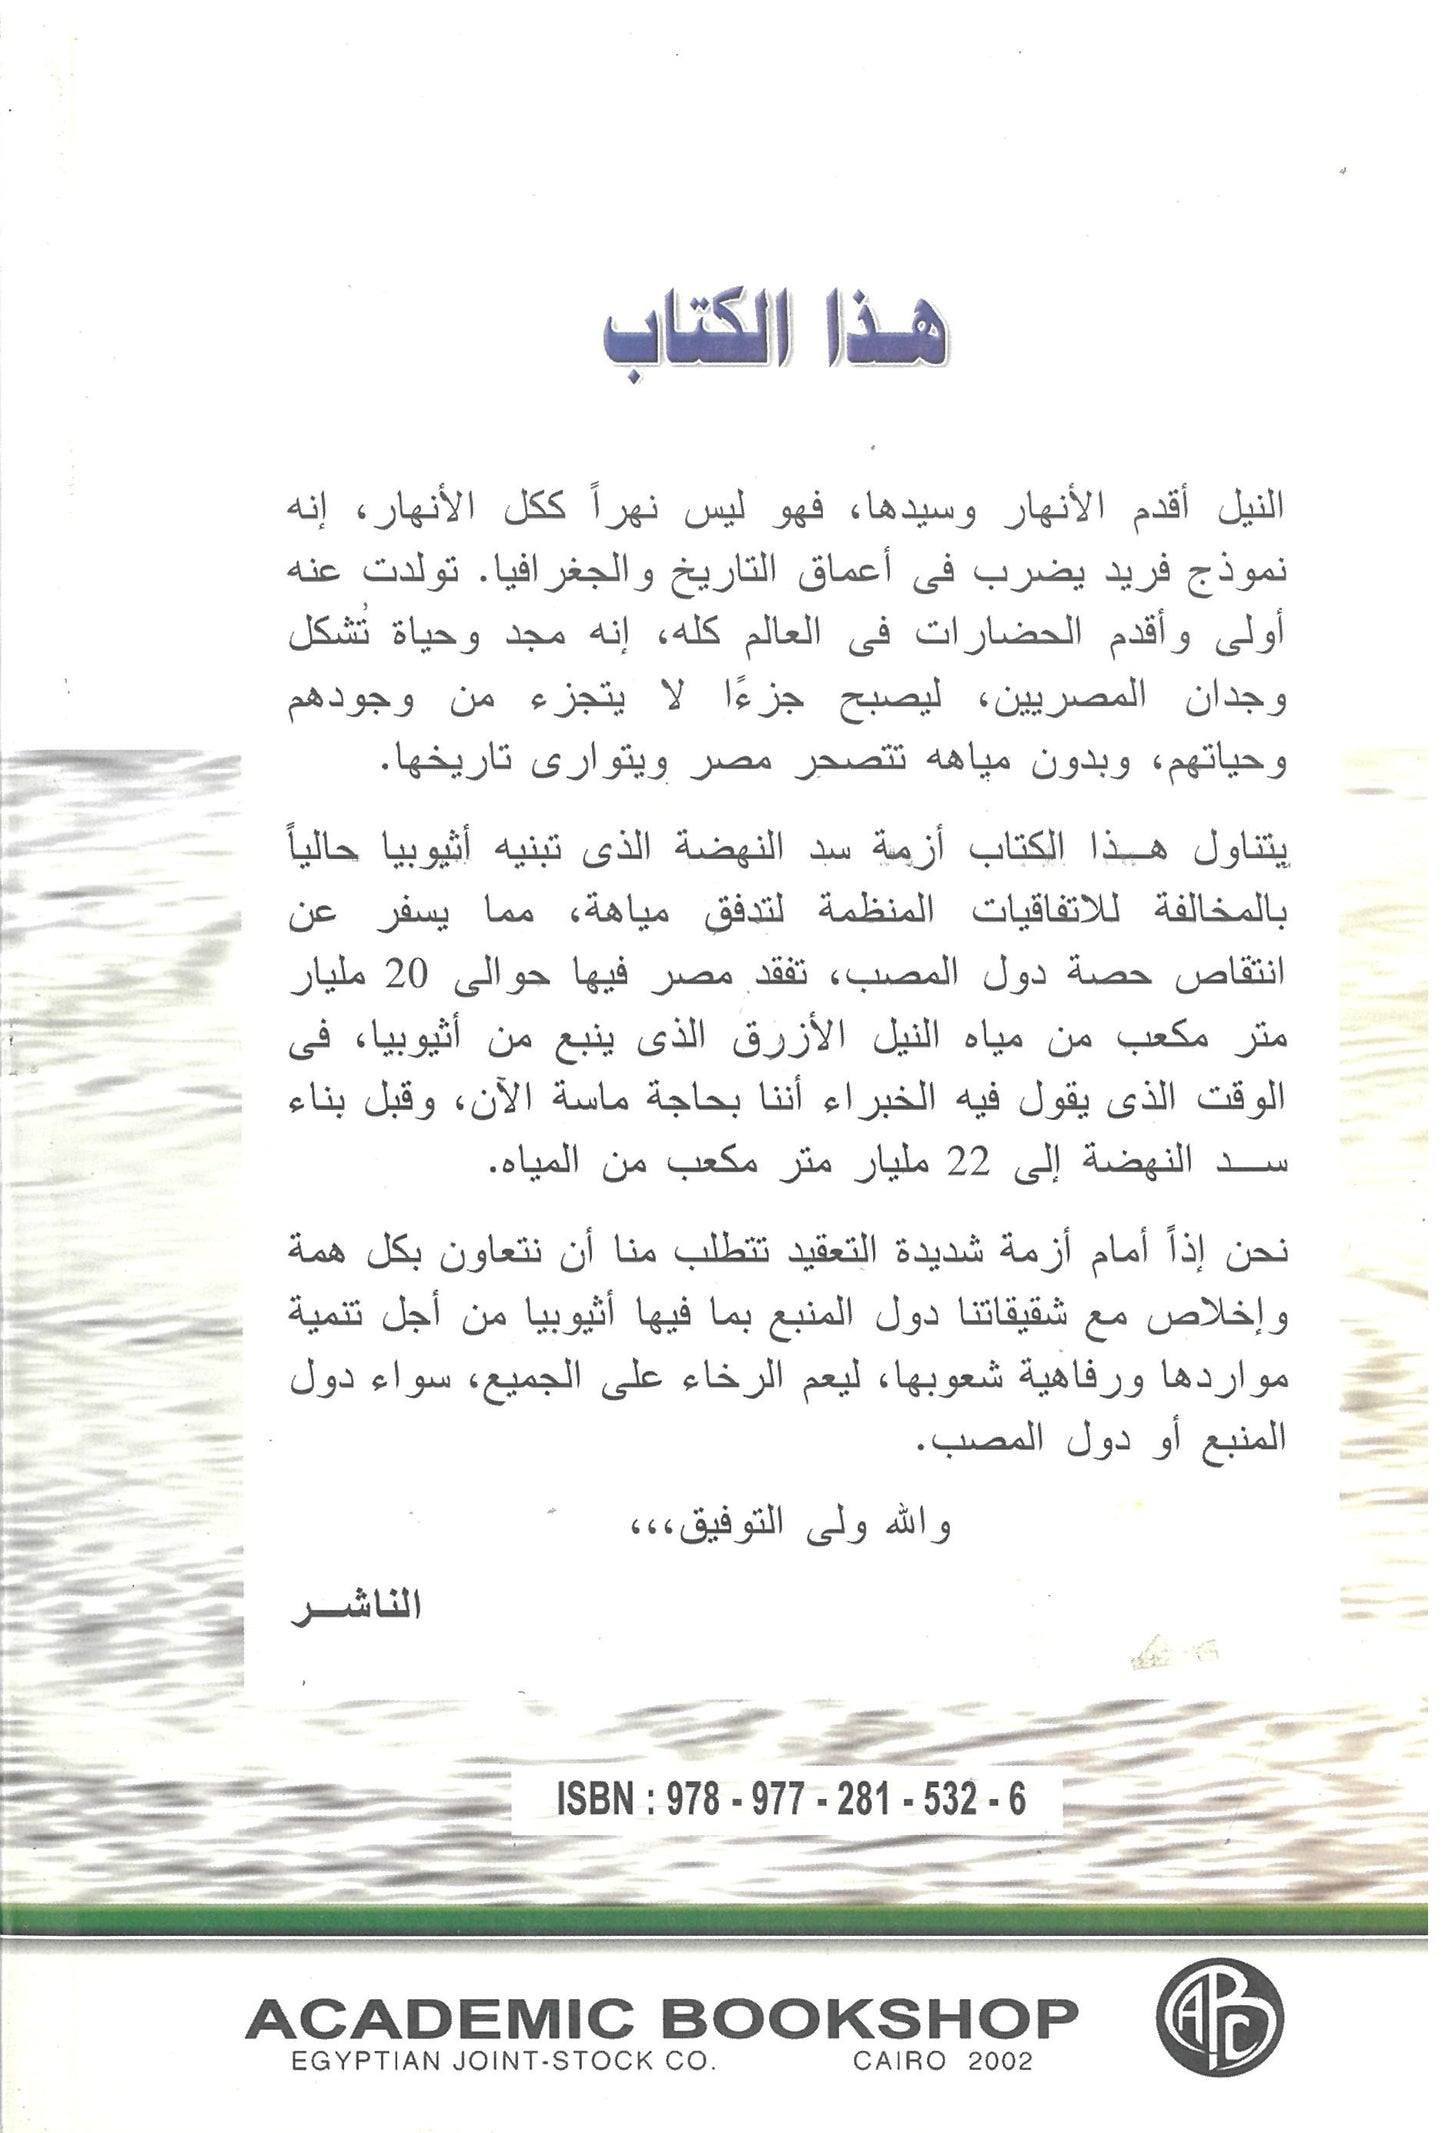 هذا الكتاب
النيل أقدم الأنهار وسيدها، فهو ليس نهراً ككل الأنهار، إنه
نموذج فريد يضرب فى أعماق التاريخ والجغرافيا. تولدت عنه
أولى وأقدم الحضارات فى العالم كله، إنه مجد وحياة تُشكل
وجدان المصريين، ليصبح جزءًا لا يتجزء من وجودهم
وحياتهم، وبدون مياهه تتصحر مصر ويتوارى تاريخها.
يتناول هـذا الكتاب أزمة سد النهضة الذى تبنيه أثيوبيا حالياً
بالمخالفة للاتفاقيات المنظمة لتدفق مياهة، مما يسفر عن
انتقاص حصة دول المصب، تفقد مصر فيها حوالى 20 مليار
متر مكعب من مياه النيل الأزرق الذى ينبع من أثيوبيا، فى
الوقت الذى يقول فيه الخبراء أننا بحاجة ماسة الآن، وقبل بناء
سـد النهضة إلى 22 مليار متر مكعب من المياه.
نحن إذاً أمام أزمة شديدة التعقيد تتطلب منا أن نتعاون بكل همة
وإخلاص مع شقيقاتنا دول المنبع بما فيها أثيوبيا من أجل تنمية
مواردها ورفاهية شعوبها، ليعم الرخاء على الجميع، سواء دول
المنبع أو دول المصب.
والله ولى التوفيق،،،
الناشـر
ISBN : 978 - 977 - 281 - 532 - 6
ACADEMIC BOOKSHOP
EGYPTIAN JOINT-STOCK CO. CAIRO 2002
ABC